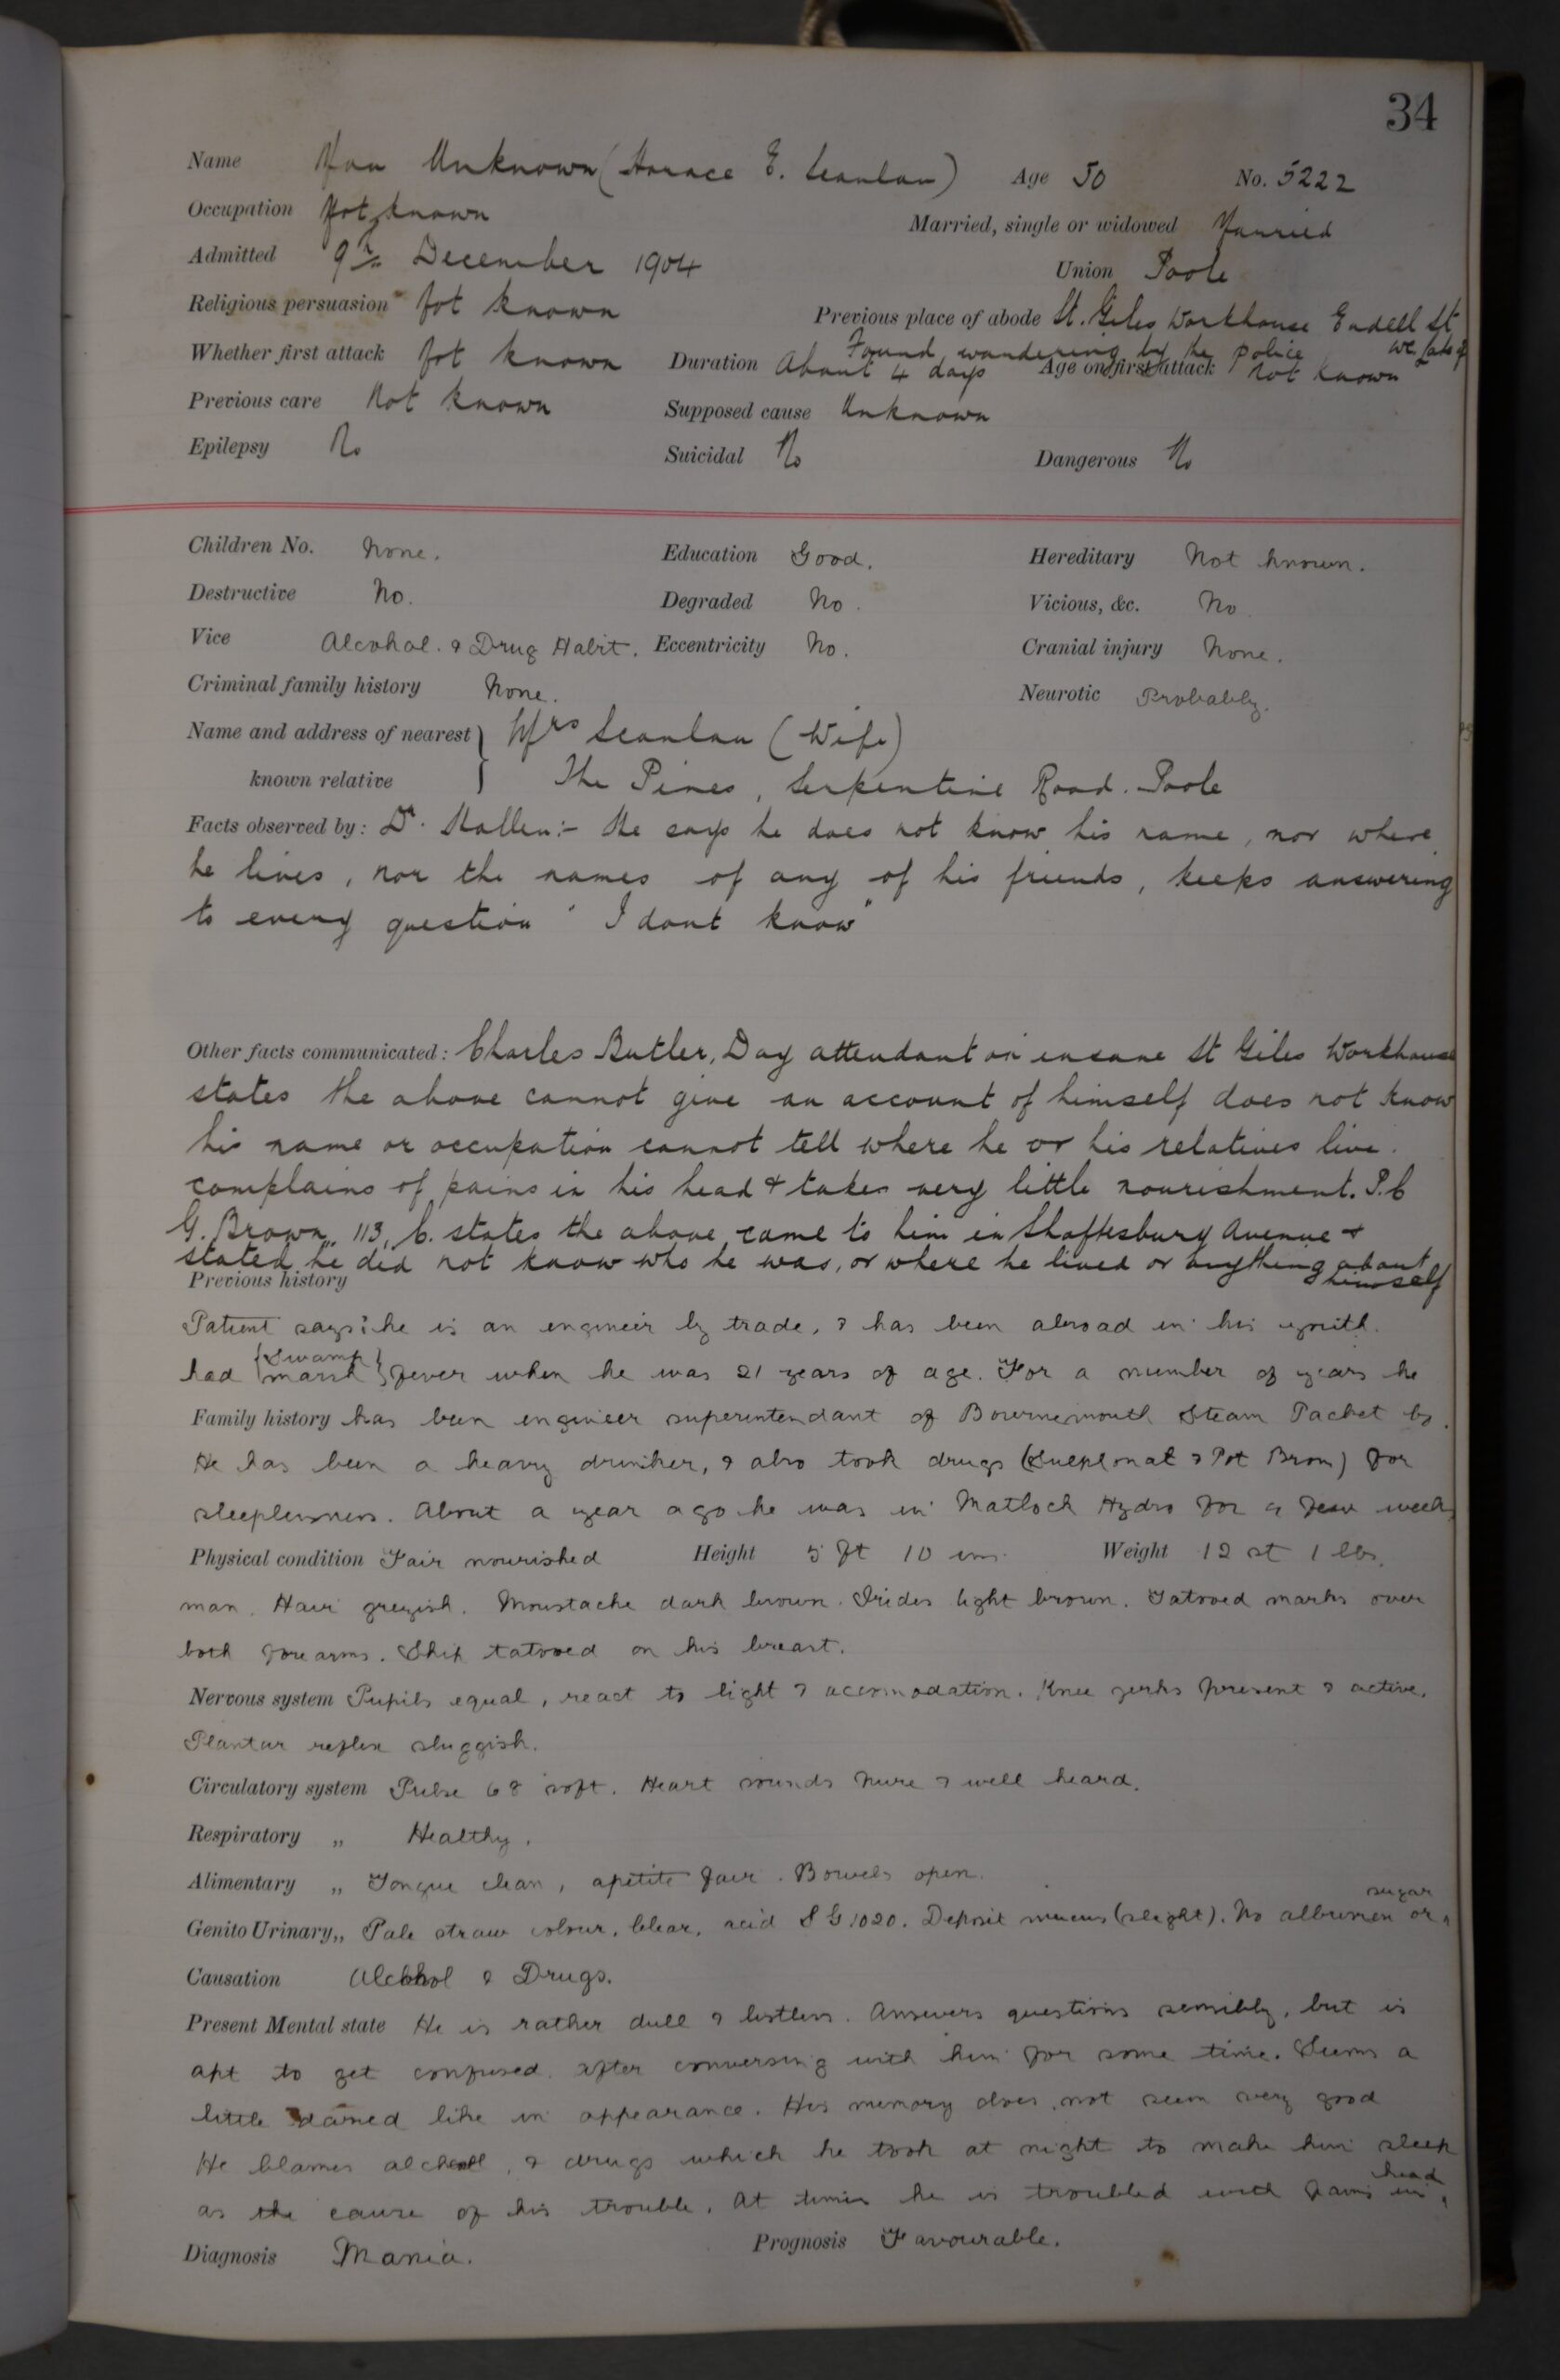 34
Name Man Unknown (Horace E. Scanlan) Age 50 No. 5222
Occupation Not known Married, single or widowed Married
Admitted 9th December 1904 Union Poole
Religious persuasion Not known Previous place of abode St. Giles Workhouse Endell St
Found wandering by the police W.C.
Whether first attack Not known Duration About 4 days Age on first attack Not known
Previous care Not known Supposed cause Unknown
Epilepsy No Suicidal No Dangerous No
Children No. None. Education Good. Hereditary Not known.
Destructive No. Degraded No. Vicious, &c. No
Vice Alcohol. & Drug Habit. Eccentricity No. Cranial injury None.
Criminal family history None. Neurotic Probably.
Name and address of nearest } Mrs Scanlan (Wife)
known relative } The Pines, Serpentine Road. Poole
Facts observed by: Dr. Hallen:- He says he does not know his name, nor where
he lives, nor the names of any of his friends, keeps answering
to every question "I dont know"
Other facts communicated: Charles Butler, Day attendant on insane St Giles Workhouse
states the above cannot give an account of himself does not know
his name or occupation cannot tell where he or his relatives live.
complains of pains in his head & takes very little nourishment. P.C
G. Brown, 113, C. states the above came to him in Shaftesbury Avenue &
stated he did not know who he was, or where he lived or anything about
himself
Previous history
Patient says: he is an engineer by trade, & has been abroad in his youth.
had {Swamp marsh} fever when he was 21 years of age. For a number of years he
Family history has been engineer superintendant of Bournemouth Steam Packet Co.
He has been a heavy drinker, & also took drugs (Sulphonal & Pot Brom) for
sleeplessness. About a year ago he was in Matlock Hydro for a few weeks
Physical condition Fair nourished Height 5 ft 10 ins. Weight 12 st 1 lbs.
man. Hair greyish. Moustache dark brown. Irides light brown. Tatooed marks over
both forearms. Ship tatooed on his breast.
Nervous system Pupils equal, react to light & accomodation. Knee jerks present & active.
Plantar reflex sluggish.
Circulatory system Pulse 68 soft. Heart sounds pure & well heard.
Respiratory „ Healthy.
Alimentary „ Tongue clean, apetite fair. Bowels open.
Genito Urinary „ Pale straw colour, Clear, acid S G 1020. Deposit mucus (slight). No albumen or sugar
Causation Alcohol & Drugs.
Present Mental state He is rather dull & listless. Answers questions sensibly, but is
apt to get confused after conversing with him for some time. Seems a
little dazed like in appearance. His memory does not seem very good
He blames alcholl, & drugs which he took at night to make him sleep
as the cause of his trouble. At times he is troubled with pains in head
Diagnosis Mania. Prognosis Favourable.